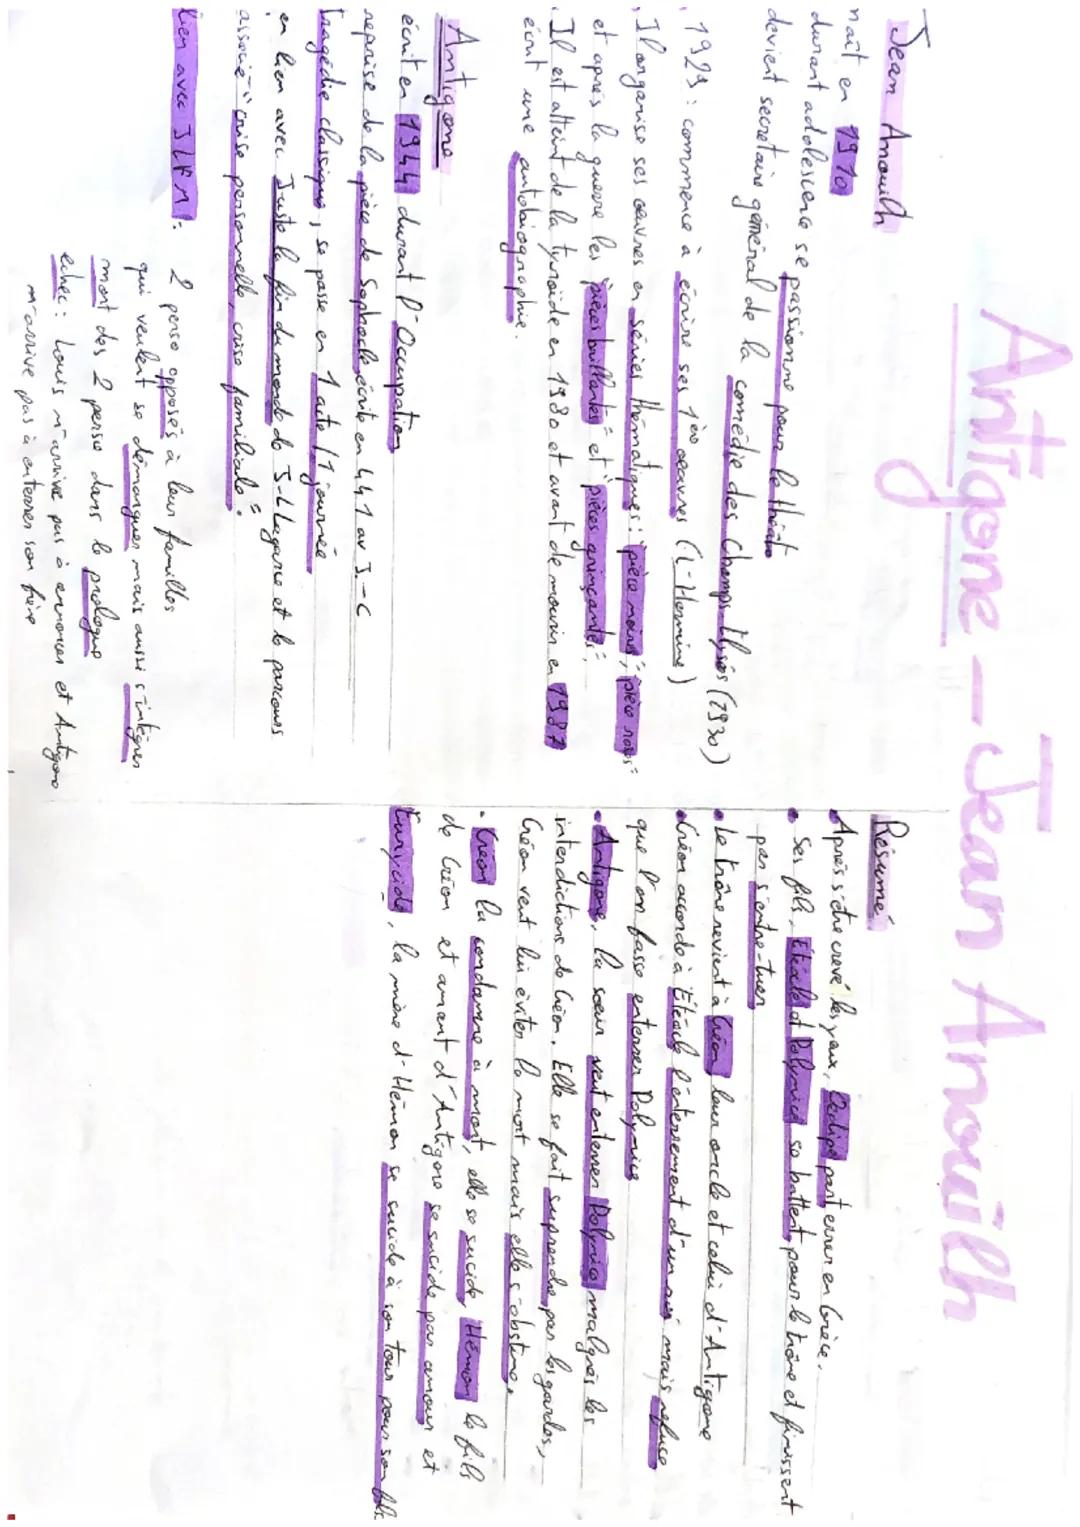 Antigone - Jean Anouilh
Jean Anouilh
naît en 1910
durant adolescence se passionne pour le théâtre
devient secrétaire général de la comédie des Champs-Elysés (1930)
1929 : commence à écrire ses 1ères oeuvres (L'Hermine)
Il organise ses oeuvres en séries thématiques : "pièce noires", "pièce roses"
et après la guerre les "pièces brillantes" et "pièces grinçantes".
Il est atteint de la tyroïde en 1980 et avant de mourir en 1987
écrit une autobiographie.
Antigone
écrit en 1944 durant l'Occupation
reprise de la pièce de Sophocle écrite en 441 av J.-C
Tragédie classique, se passe en 1 acte / 1 journée
en lien avec Juste la fin du monde de J-L Lagarce et le parcours
associé "crise personnelle, crise familiale".
Lien avec JLFM :
2 perso opposés à leur familles
qui veulent se démarquer mais aussi s'intégrer
mort des 2 perso dans le prologue
échec : Louis n'arrive pas à annoncer et Antigone
n'arrive pas à enterrer son frère
Résumé
• Après s'être crevé les yeux, Oedipe part errer en Grèce.
• Ses fils, Étéocle et Polynice se battent pour le trône et finissent
par s'entre-tuer
• Le trône revient à Créon leur oncle et celui d'Antigone
• Créon accorde à Etéocle l'enterrement d'un roi mais refuse
que l'on fasse enterrer Polynice
• Antigone, la soeur veut enterrer Polynice malgrés les
interdictions de Créon. Elle se fait suprendre par les gardes,
Créon veut lui éviter la mort mais elle s'obstine.
• Créon la condamne à mort, elle se suicide, Hémon le fils
de Créon et amant d'Antigone se suicide par amour et
Eurycide, la mère d'Hémon se suicide à son tour pour son fils